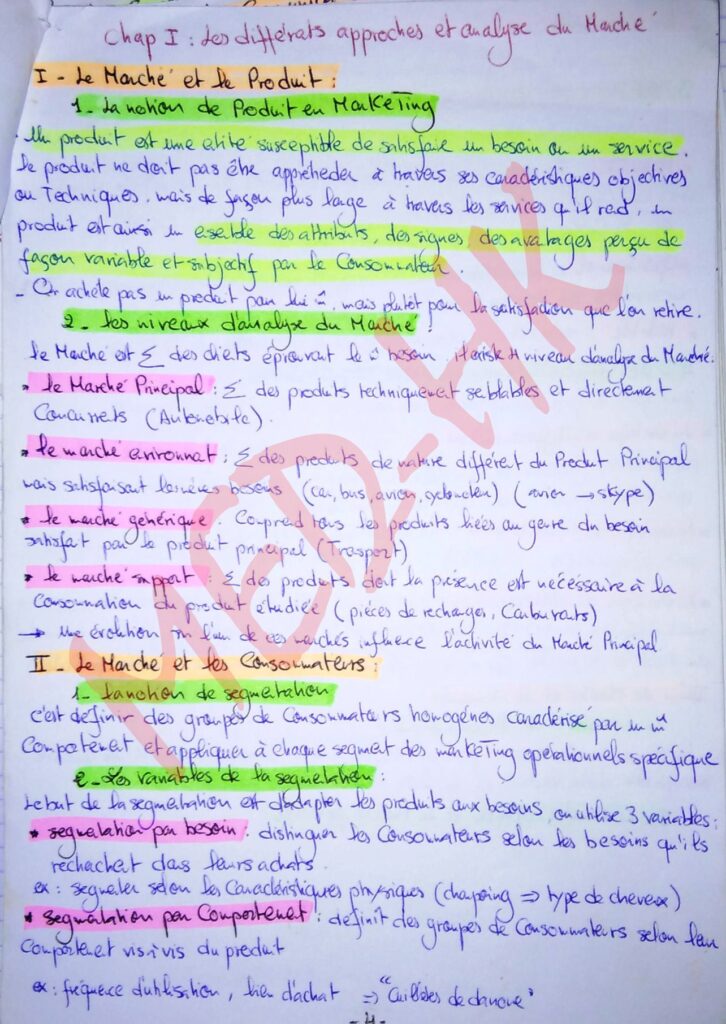 Chap I : Les différats approches et analyse du Marché
I - Le Marché et le Produit :
1_ La notion de Produit en Marketing
. Un produit est une etité susceptible de satisfaie un besoin ou un service.
Le produit ne doit pas être appréheder à travers ses caractéristiques objectives
ou Techniques, mais de façon plus large à travers les services qu'il red, un
produit est ainsi un eseble des attributs, des signes, des avatages perçu de
façon variable et subjectif par le Consommateur.
_ On achéte pas un produit pour lui m̂, mais plutôt pour la satisfaction que l'on retire.
2_ Les niveaux d'analyse du Marché :
Le Marché est Σ des cliets éprouvat le m̂ besoin. niveau d'analyse du Marché.
* Le Marché Principal : Σ des produits techniquemet seblables et directement
Concurrets (Automobile).
* Le marché environnat : Σ des produits de nature différet du Produit Principal
mais satisfaisant besoins (car, bus, avion, ) (avion → skype)
* Le marché générique . Coprend tous les produits liées au genre du besoin
satisfait par le produit principal (Trasport)
* Le marché support : Σ des produits dont la présence est nécessaire à la
Consommation du produit étudiée (piéces de rechanges, Carburats)
→ une évolution sur l'un de ces marchés influence l'activité du Marché Principal
II - Le Marché et les Consommateurs :
1_ La notion de segmetation
c'est definir des groupes de Consommateurs homogénes caractérisé par un m̂
Comportemet et appliquer à chaque segment des marketing opérationnels spécifique
2_ Les variables de la segmetation :
Le but de la segmetation est d'adapter les produits aux besoins, on utilise 3 variables :
* segmetation par besoin : distinguer les Consommateurs selon les besoins qu'ils
rechechet dans leurs achats.
ex : segmeter selon les Caractéristiques physiques (champoing ⇒ type de cheveux)
* segmetation par Comportemet : definit des groupes de Consommateurs selon leur
Comportemet vis à vis du produit
ex : fréquece d'utilisation, lieu d'achat ⇒
- 4 -
MED-HK